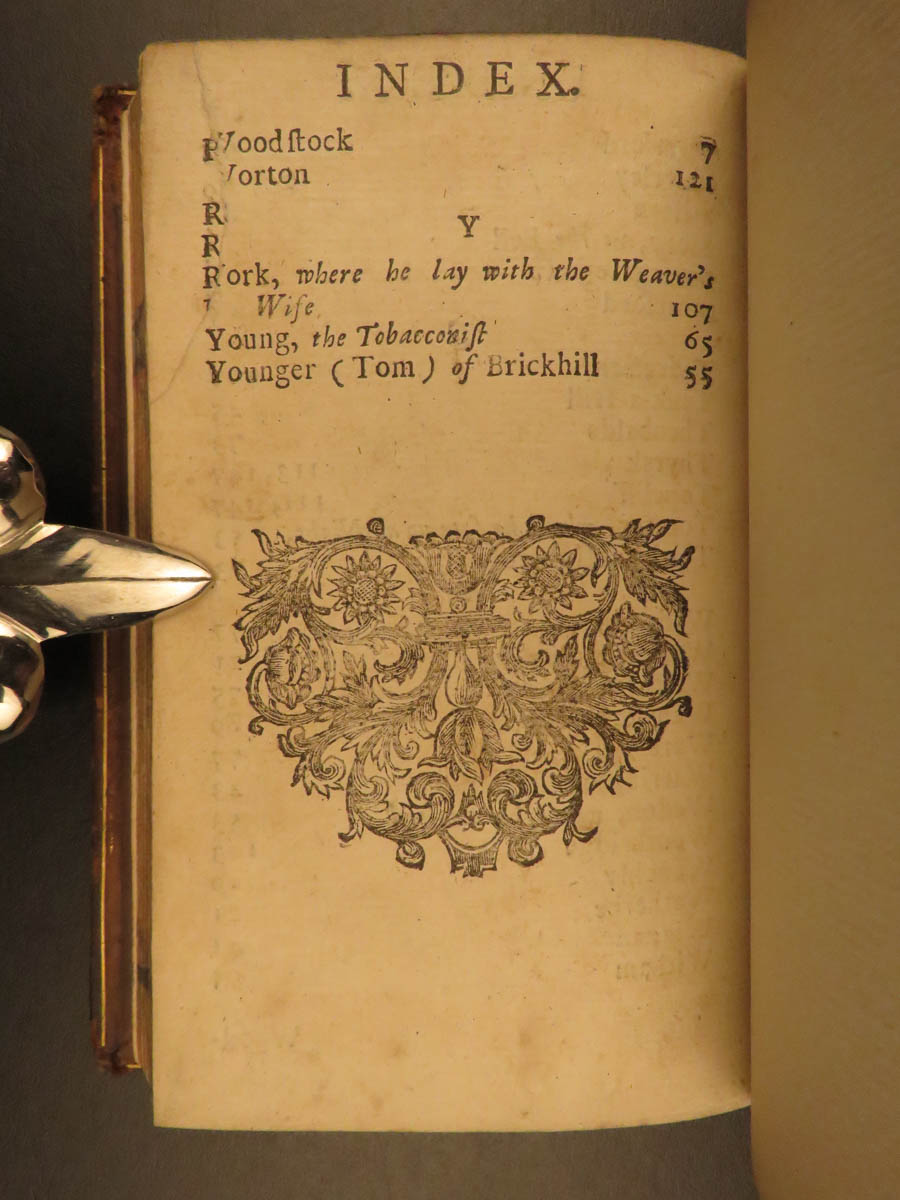 INDEX.
Woodſtock 7
Worton 121
R
Y
R
York, where he lay with the Weaver's
Wife 107
Young, the Tobacconiſt 65
Younger (Tom) of Brickhill 55